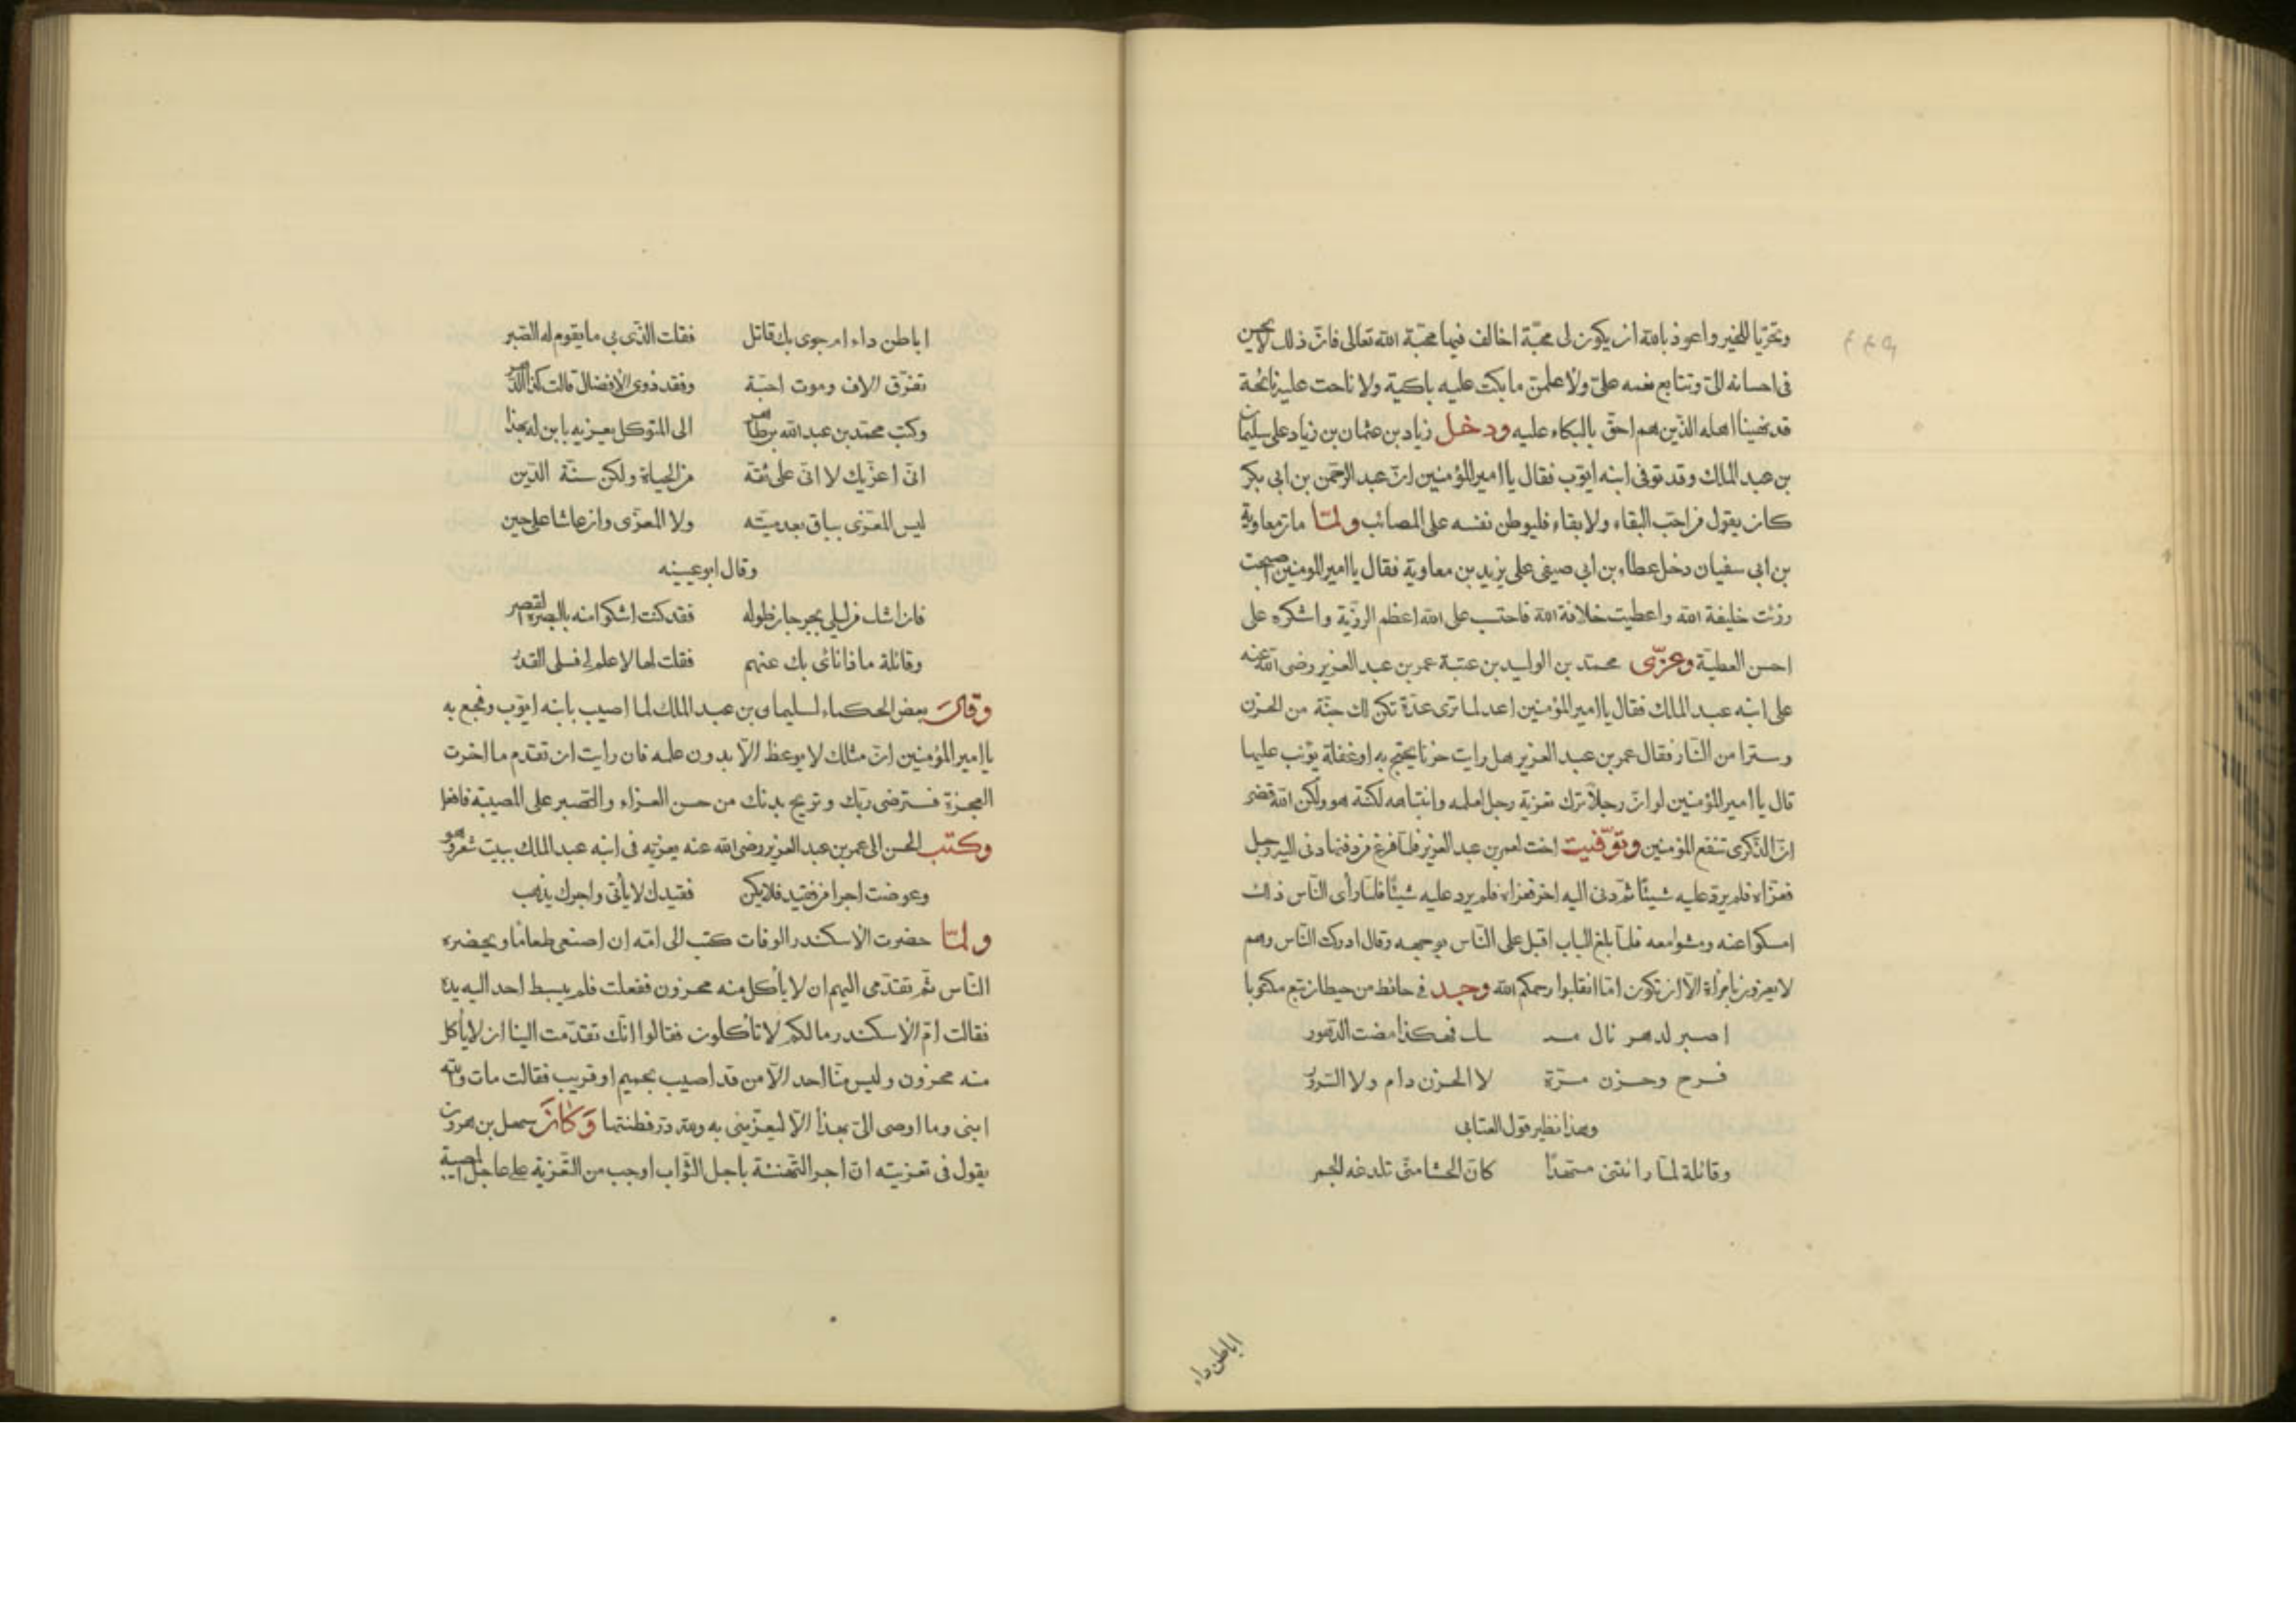 وتحرّيا للخير واعوذ بالله ان يكون لى محبّة اخالف فيها محبّة الله تعالى فانّ ذلك لا يحسن
فى احسانه الىّ وتتابع نعمه علىّ ولاعلمنّ ما بكت عليه باكية ولا ناحت عليه نائحة
قد نهينا اهله الذين هم احقّ بالبكاء عليه ودخل زياد بن عثمان بن زياد على سليمان
بن عبد الملك وقد توفى ابنه ايّوب فقال يا امير المؤمنين انّ عبد الرحمن بن ابى بكر
كان يقول من احبّ البقاء ولا بقاء فليوطن نفسه على المصائب ولمّا مات معاوية
بن ابى سفيان دخل عطاء بن ابى صيفى على يزيد بن معاوية فقال يا امير المومنين اصبحت
رزئت خليفة الله واعطيت خلافة الله فاحتسب على الله اعظم الرزيّة واشكره على
احسن العطيّة وعزّى محمّد بن الوليد بن عتبة عمر بن عبد العزيز رضى الله عنه
على ابنه عبد الملك فقال يا امير المؤمنين اعد لما ترى عدّة تكن لك جنّة من الحزن
وسترا من النّار فقال عمر بن عبد العزيز هل رايت حزنا يحتج به او غفلة يؤنب عليها
قال يا امير المؤمنين لو انّ رجلا ترك تعزية رجل لعلمه وانتباهه لكنته هو ولكن الله قضى
انّ الذّكرى تنفع المؤمنين وتوّفيت اخت لعمر بن عبد العزيز فلمّا فرغ من دفنها دنى اليه رجل
فعزّاه فلم يردّ عليه شيئا ثمّ دنى اليه اخر فعزاه فلم يرد عليه شيئا فلمّا رأى النّاس ذلك
امسكوا عنه ومشوا معه فلمّا بلغ الباب اقبل على النّاس بوجهه وقال ادركت النّاس وهم
لا يعزون بامرأة الّا ان تكون امّا انقلبوا رحمكم الله وجد فى حائط من حيطان تبع مكتوبا
اصبر لدهر نال منـ ـك فهكذا مضت الدّهور
فرح وحزن مرّة لا الحزن دام ولا السّرور
وهذا نظير قول العتابى
وقائلة لمّا راتنى مسهدا كانّ الحشا منّى تلدغه الجمر
اباطن داء
اباطن داء ام جوى بك قاتل فقلت الذّى بى ما يقوم له الصّبر
تفرّق الاف وموت احبّة وفقد ذوى الافضال قالت كذا الدّهر
وكتب محمّد بن عبد الله بن طاهر الى المتوكل يعزيه بابن له بهذا
انّى اعزّيك لا انّى على ثقة من الحياة ولكن سنّة الدّين
ليس المعزّى بباق بعد ميّته ولا المعزّى وان عاشا على حين
وقال ابو عيينه
فان اشك من ليلى بجرجان طوله فقد كنت اشكوا منه بالبصرة القصر
وقائلة ماذا نائ بك عنهم فقلت لها لا علم لى فسلى القدر
وقال بعض الحكماء لسليمان بن عبد الملك لما اصيب بابنه ايّوب وفجع به
يا امير المؤمنين انّ مثلك لا يوعظ الّا بدون علمه فان رايت ان تقدم ما اخرت
العجزة فترضى ربّك وتريح بدنك من حسن العزاء والصّبر على المصيبة فافعل
وكتب الحسن الى عمر بن عبد العزيز رضى الله عنه يعزيه فى ابنه عبد الملك ببيت شعر وهو
وعوضت اجرا من فقيد فلا يكن فقيدك لا يأتى واجرك يذهب
ولمّا حضرت الاسكندر الوفات كتب الى امّه ان اصنعى طعاما ويحضره
النّاس ثمّ تقدّمى اليهم ان لا يأكل منه محزون ففعلت فلم يبسط احد اليه يده
فقالت امّ الاسكندر ما لكم لا تأكلون فقالوا انّك تقدّمت الينا ان لا ياكل
منه محزون وليس منّا احد الّا من قد اصيب بحميم او قريب فقالت مات والله
ابنى وما اوصى الىّ بهذا الّا ليعزّينى به وكان سهل بن هرون
يقول فى تعزيته انّ اجر التّهنئة باجل الثّواب اوجب من التّعزية على عاجل المصيبة